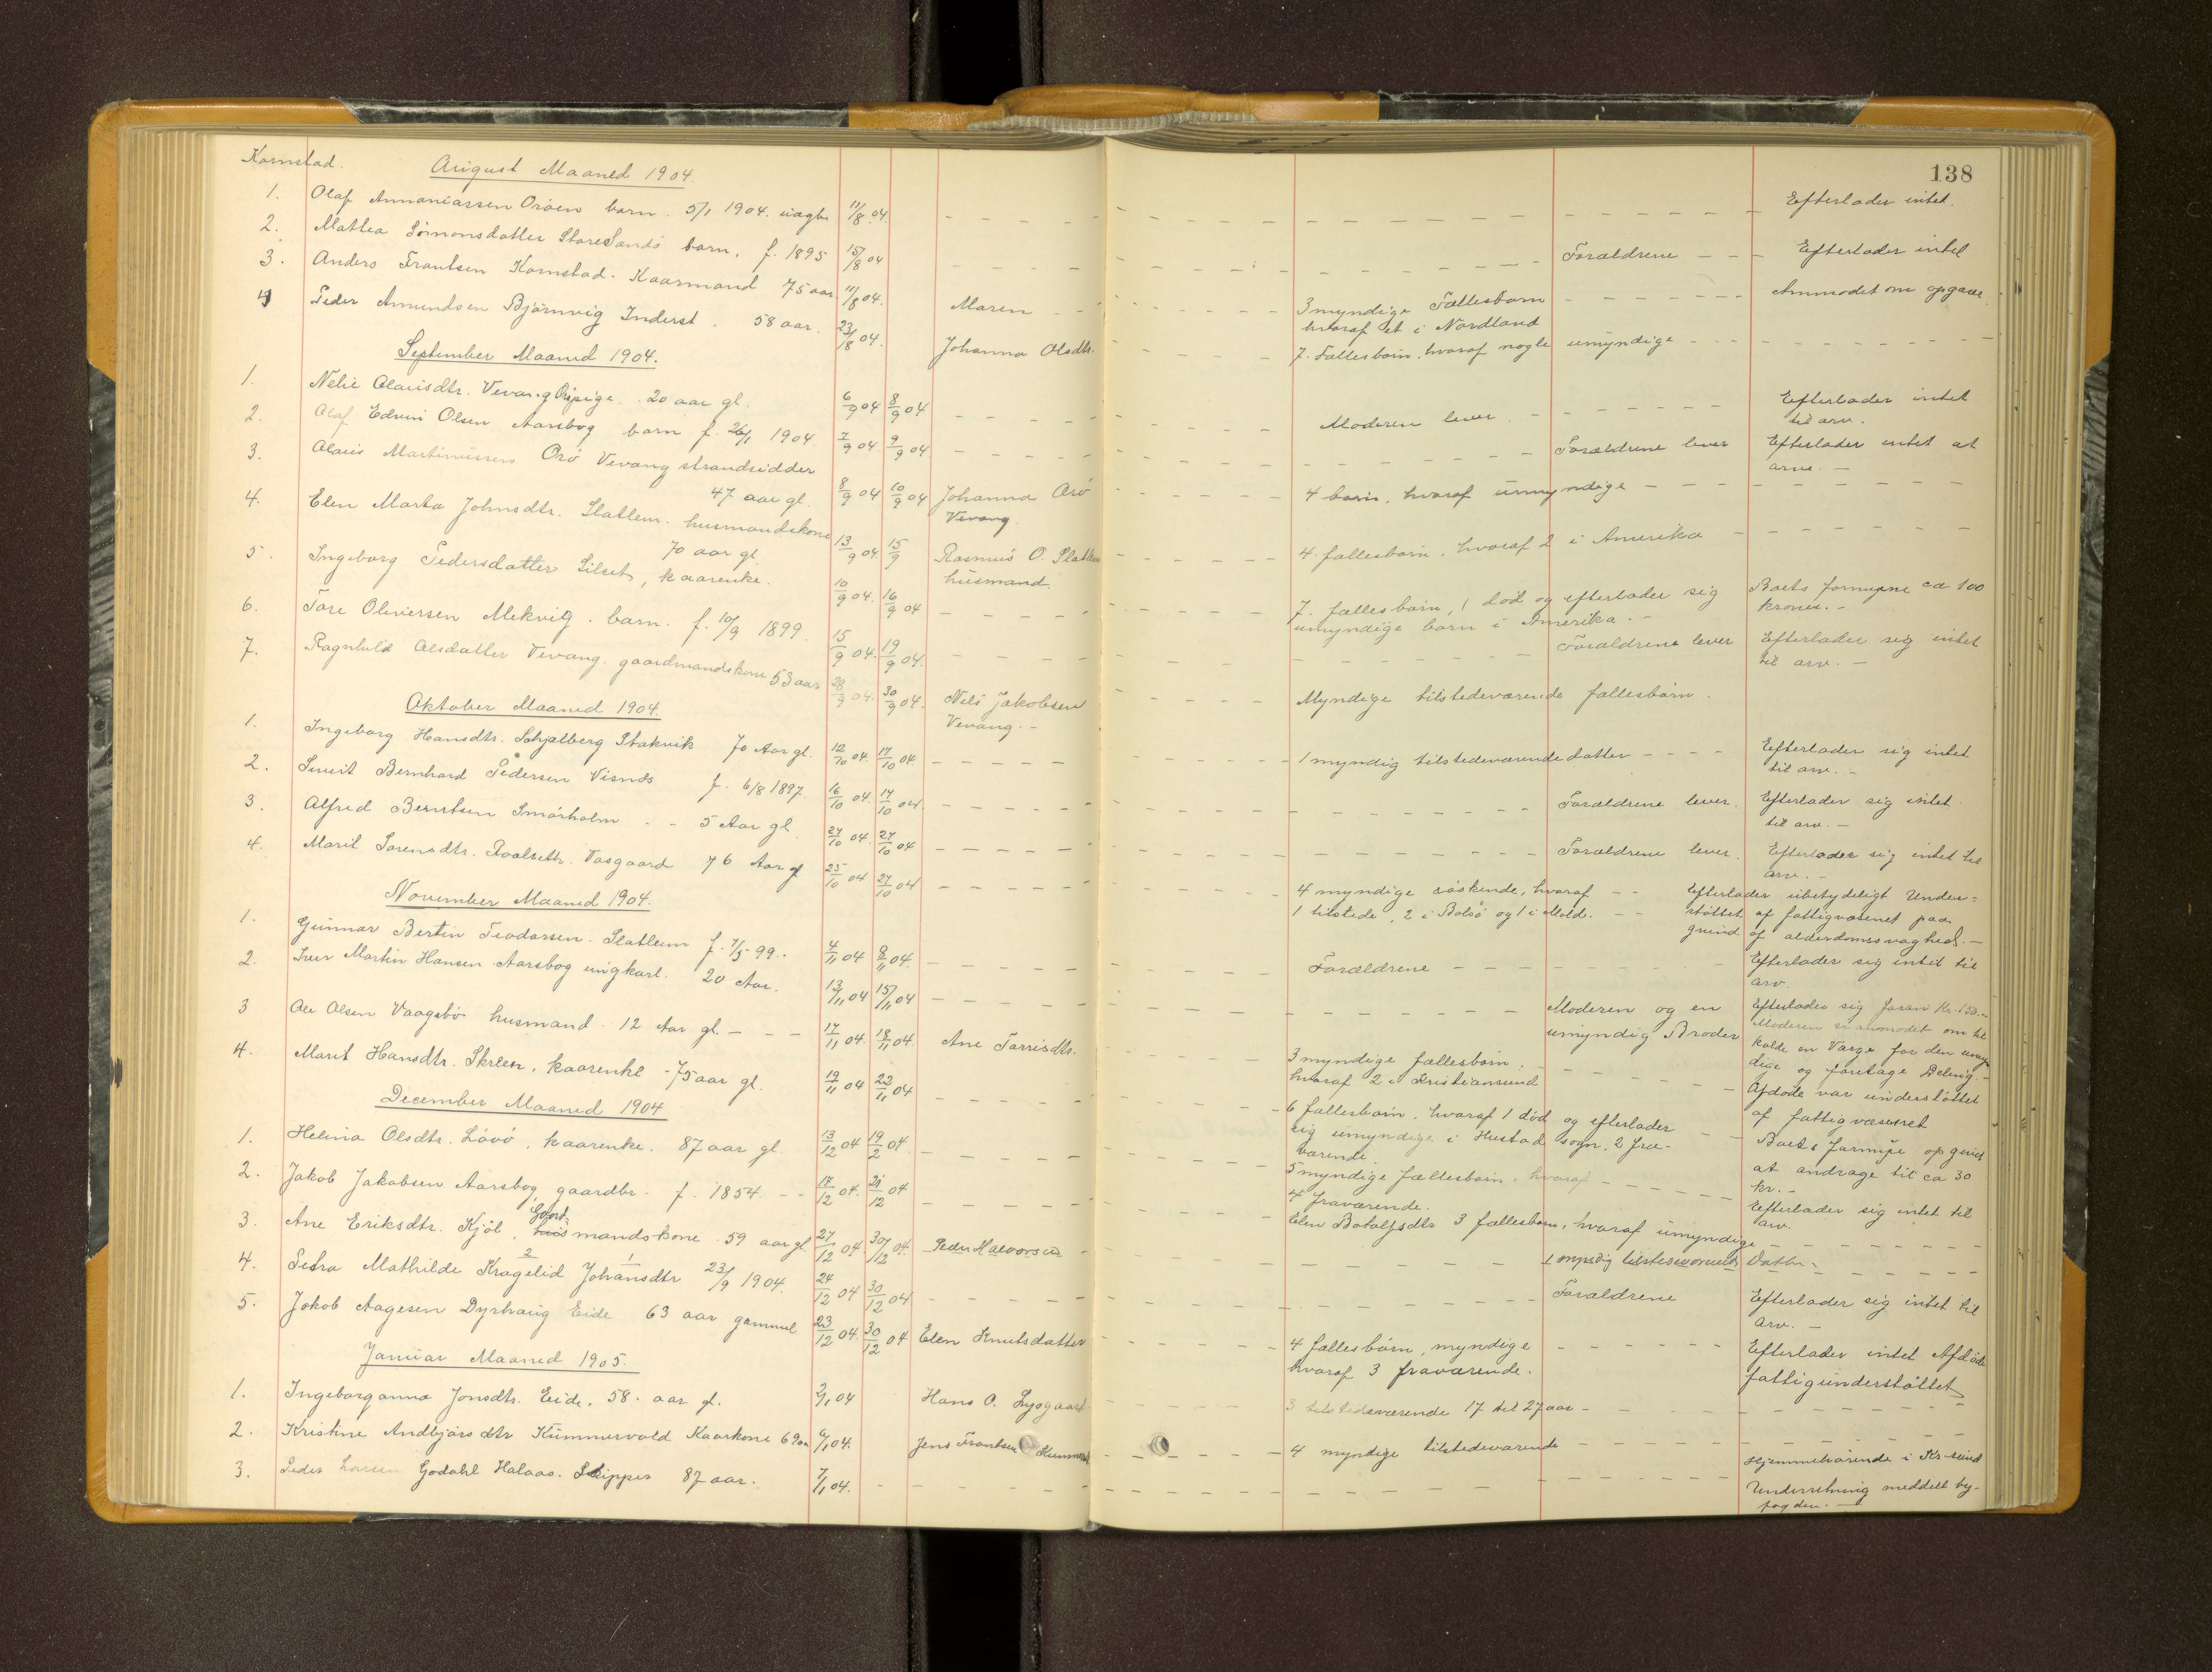 138
Kornstad. August Maaned 1904.
1. Olaf Annaniassen Orøen barn. 5/1 1904. uægte 11/8 04. Efterlader intet.
2. Mattea Simonsdatter StoreSandø barn. f. 1895 15/8 04 Forældrene Efterlader intet
3. Anders Frantsen Kornstad. Kaarmand 75 aar 11/8 04. Maren 3 myndige Fællesbørn Anmodet om opgave.
hvoraf et i Nordland
4 Peder Amundsen Bjørnvig Inderst. 58 aar. 23/8 04. Johanna Olsdtr. 7. Fællesbørn, hvoraf nogle umyndige
September Maaned 1904.
1. Nelie Olausdtr. Vevang pige. 20 aar gl. 6/9 04 8/9 04 Moderen lever Efterlader intet
til arv.
2. Olaf Edvin Olsen Aarsbog barn f. 26/1 1904. 7/9 04. 9/9 04 Forældrene lever Efterlader intet at
arve. —
3. Olaus Martinussen Orø Vevang strandsidder
47 aar gl. 8/9 04 10/9 04 Johanna Orø 4 børn, hvoraf umyndige
Vevang.
4. Elen Marta Johnsdtr. Slatlem. husmandskone
70 aar gl. 13/9 04. 15/9 Rasmus O. Slatlem 4. fællesbørn, hvoraf 2 i Amerika
husmand.
5. Ingeborg Pedersdatter Silset, kaarenke. 10/9 04. 16/9 04 7. fællesbørn, 1 død og efterlader sig Boets formue ca 100
umyndige børn i Amerika. — kroner. —
6. Tore Oliversen Mekvig. barn. f. 10/9 1899. 15/9 04. 19/9 04. Forældrene lever Efterlader sig intet
til arv. —
7. Ragnhild Olsdatter Vevang. gaardmandskone 53 aar 28/9 04. 30/9 04. Nils Jakobsen Myndige tilstedeværende fællesbørn.
Vevang. —
Oktober Maaned 1904.
1. Ingeborg Hansdtr. Schjølberg Stakvik 70 Aar gl. 12/10 04. 17/10 04. 1 myndig tilstedeværende datter Efterlader sig intet
til arv. —
2. Bernhard Pedersen Visnes f. 6/8 1897. 16/10 04. 17/10 04 Forældrene lever. Efterlader sig intet
til arv. —
3. Alfred Berntsen Smørholm 5 Aar gl. 27/10 04. 27/10 04 Forældrene lever. Efterlader sig intet til
arv. —
4. Marit Sorensdtr. Roalseth. Vasgaard 76 Aar gl 25/10 04 27/10 04 4 myndige søskende, hvoraf Efterlader ubetydeligt Under=
1 tilstede, 2 i Bolsø og 1 i Molde. støttet af fattigvæsenet paa
grund af alderdomssvaghed. —
November Maaned 1904.
1. Gunnar Bertin Teodorsen. Slatlem f. 7/5 99. 4/11 04 9/11 04. Forældrene Efterlader sig intet til
arv.
2. Iver Martin Hansen Aarsbog ungkarl. 20 Aar. 13/11 04 15/11 04 Moderen og en Efterlader sig Kr. 150. —
umyndig Broder Moderen er anmodet om til
kalde en Værge for den umyn
dige og foretage Deling. —
3 Ole Olsen Vaagsbø husmand. 12 Aar gl. 17/11 04. 18/11 04. Ane Tarrisdtr. 3 myndige fællesbørn.
hvoraf 2 i Kristiansund
4. Marit Hansdtr. Skreen, kaarenke - 75 aar gl. 19/11 04 22/11 04 6 fællesbørn, hvoraf 1 død og efterlader Afdøde var understøttet
sig umyndige i Hustad sogn, 2 fra- af fattigvæsenet
værende.
December Maaned 1904
1. Helina Olsdtr. Løvø, kaarenke. 87 aar gl. 13/12 04 19/2 04. 5 myndige fællesbørn, hvoraf Boets formue opgives
4 fraværende. at andrage til ca 30
kr. —
2. Jakob Jakobsen Aarsbog, gaardbr. f. 1854. 17/12 04. 21/12 04 Elen Botolfsdtr 3 fællesbørn, hvoraf umyndige Efterlader sig intet til
arv.
3. Ane Eriksdtr. Kjøl, Gaardmandskone 59 aar gl 27/12 04. 30/12 04. Peder Halvorsen 1 myndig tilstedeværende Datter.
4. Petra Mathilde Kragelid Johansdtr 23/9 1904. 24/12 04 30/12 04 Forældrene Efterlader sig intet til
arv. —
5. Jokob Aagesen Dyrhaug Eide 63 aar gammel 23/12 04. 30/12 04 Elen Knutsdatter 4 fællesbørn, myndige Efterlader intet Afdøde
hvoraf 3 fraværende. fattigunderstøttet
Januar Maaned 1905.
1. Ingeborganna Jonsdtr. Eide, 58. aar gl. 2/1 04 Hans O. Lysgaard 3 tilstedeværende 17 til 27 aar
2. Kristine Andbjørsdtr Kummervold Kaarkone 69 aar 6/1 04. Jens Frantsen 4 myndige tilstedeværende
3. Peder Larsen Godahl Halaas. Skipper 87 aar. 7/1 04. Hjemmehørende i Kr.sund
Underretning meddelt by-
fogden. —